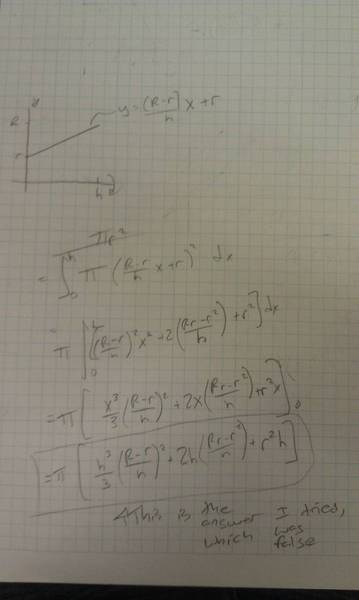 y
R
y = (R-r)/h x + r
r
h
x
πr²
= ∫₀ʰ π (R-r/h x + r)² dx
π ∫₀ʰ [(R-r/h)² x² + 2(Rr-r²/h) + r²] dx
= π [x³/3 (R-r/h)² + 2x(Rr-r²/h) + r²x]₀
= π [h³/3 (R-r/h)² + 2h(Rr-r²/h) + r²h]
This is the answer I tried,
which was
false